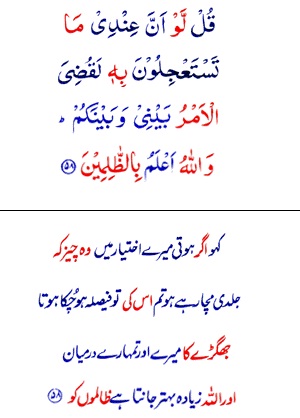 قُلْ لَّوْ اَنَّ عِنْدِىْ مَا
تَسْتَعْجِلُوْنَ بِهٖ لَقُضِىَ
الْاَمْرُ بَيْنِىْ وَبَيْنَكُمْ ؕ
وَاللّٰهُ اَعْلَمُ بِالظّٰلِمِيْنَ ﴿۵۸﴾
کہو اگر ہوتی میرے اختیار میں وہ چیز کہ
جلدی مچا رہے ہو تم اس کی تو فیصلہ ہوچُکا ہوتا
جھگڑے کا میرے اور تمہارے درمیان
اور اللہ زیادہ بہتر جانتا ہے ظالموں کو ﴿۵۸﴾